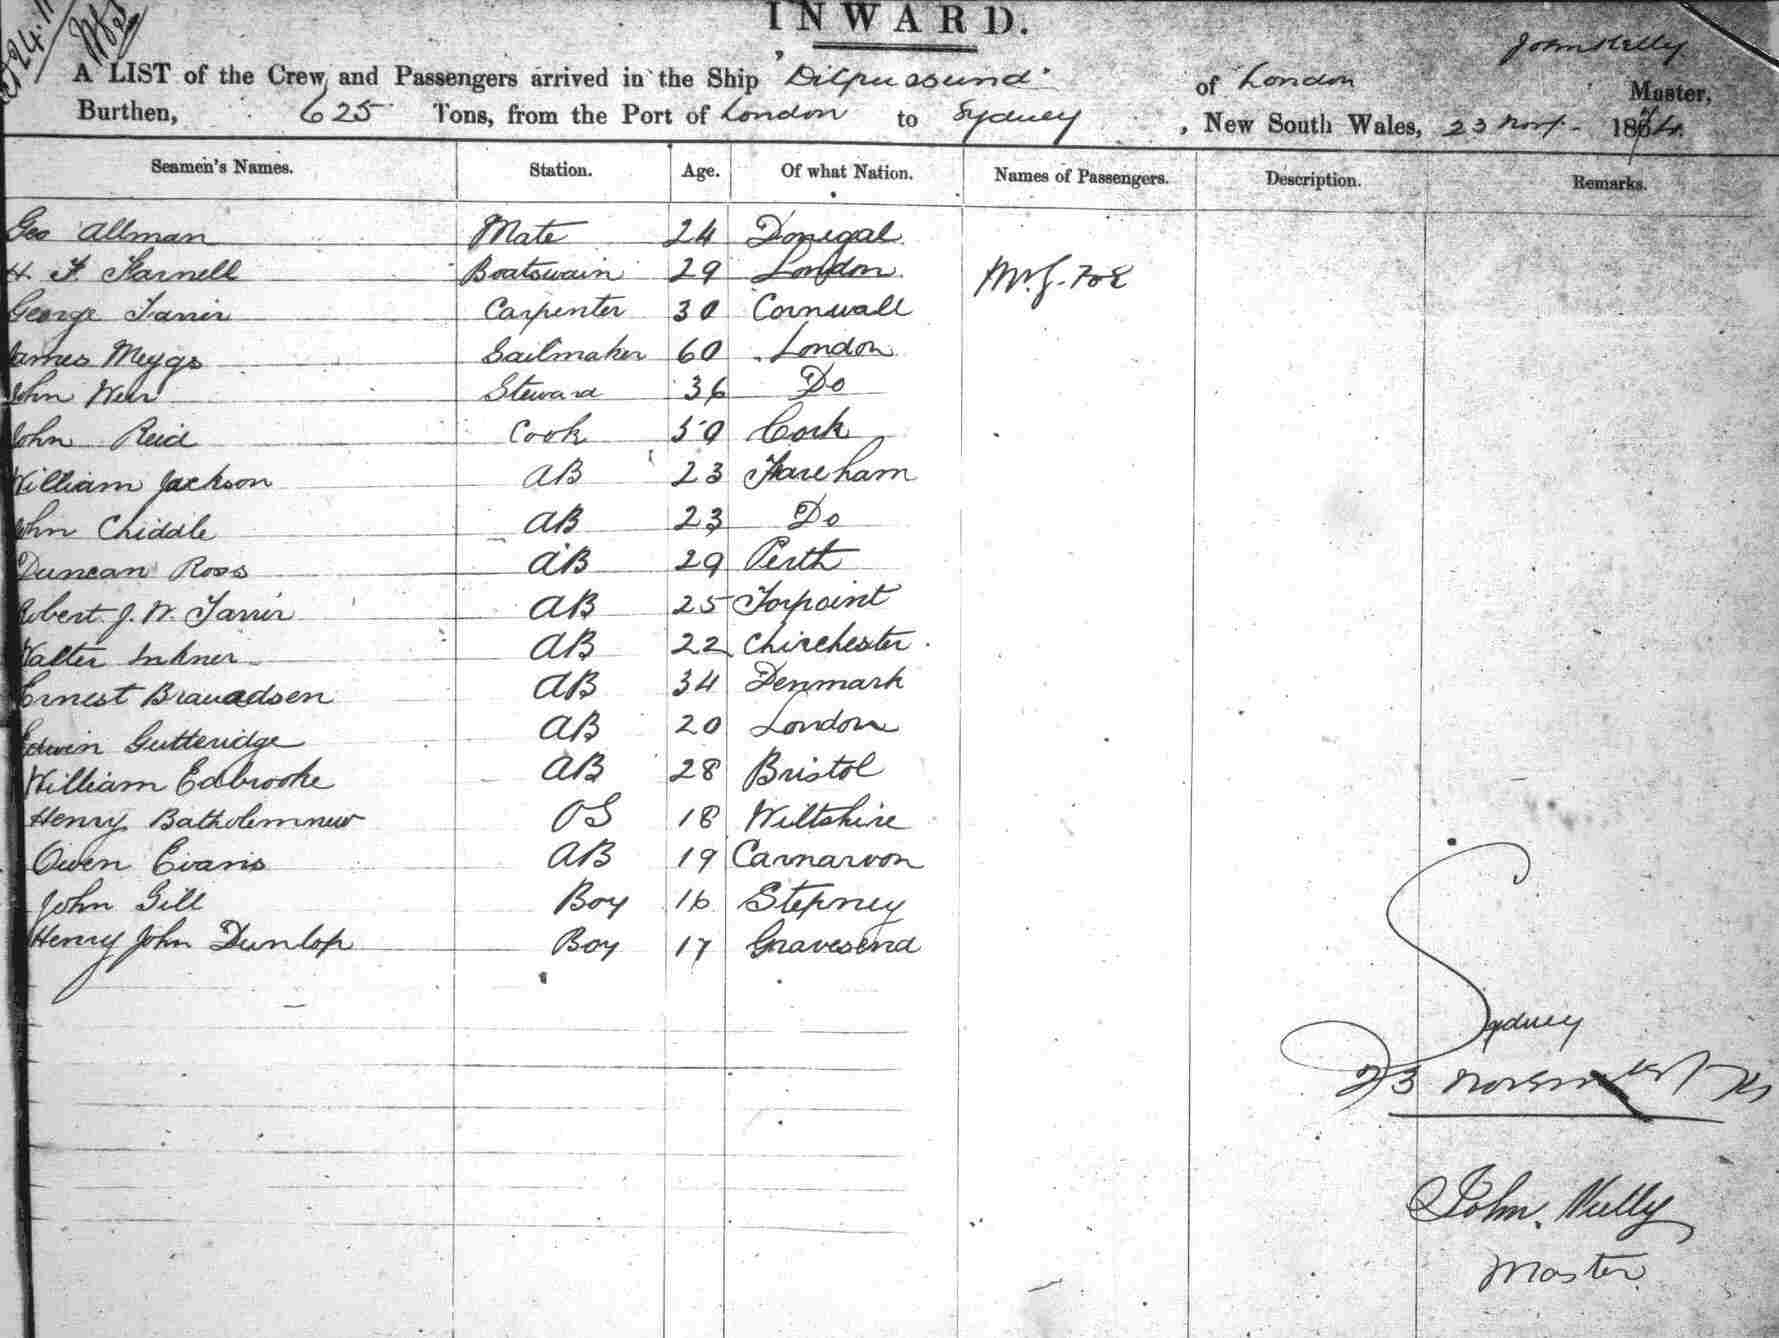 INWARD.
John Kelly
A LIST of the Crew and Passengers arrived in the Ship "Dilpussund" of London Master,
Burthen, 625 Tons, from the Port of London to Sydney, New South Wales, 23 Novr. 1874
Seamen's Names. Station. Age. Of what Nation. Names of Passengers. Description. Remarks.
Geo Allman Mate 24 Donegal
H. F. Farnell Boatswain 29 London
George Tarrir Carpenter 30 Cornwall
James Meygs Sailmaker 60 London
John Weir Steward 36 Do
John Reid Cook 50 Cork
William Jackson AB 23 Fareham
John Chiddle AB 23 Do
Duncan Ross AB 29 Perth
Robert J. W. Tarrir AB 25 Torpoint
Walter AB 22 Chirchester
Ernest AB 34 Denmark
Edwin Gutteridge AB 20 London
William Edbrooke AB 28 Bristol
Henry Batholemnew OS 18 Wiltshire
Owen Evans AB 19 Carnarvon
John Gill Boy 16 Stepney
Henry John Dunlop Boy 17 Gravesend
Sydney
23 November / 74
John Kelly
Master